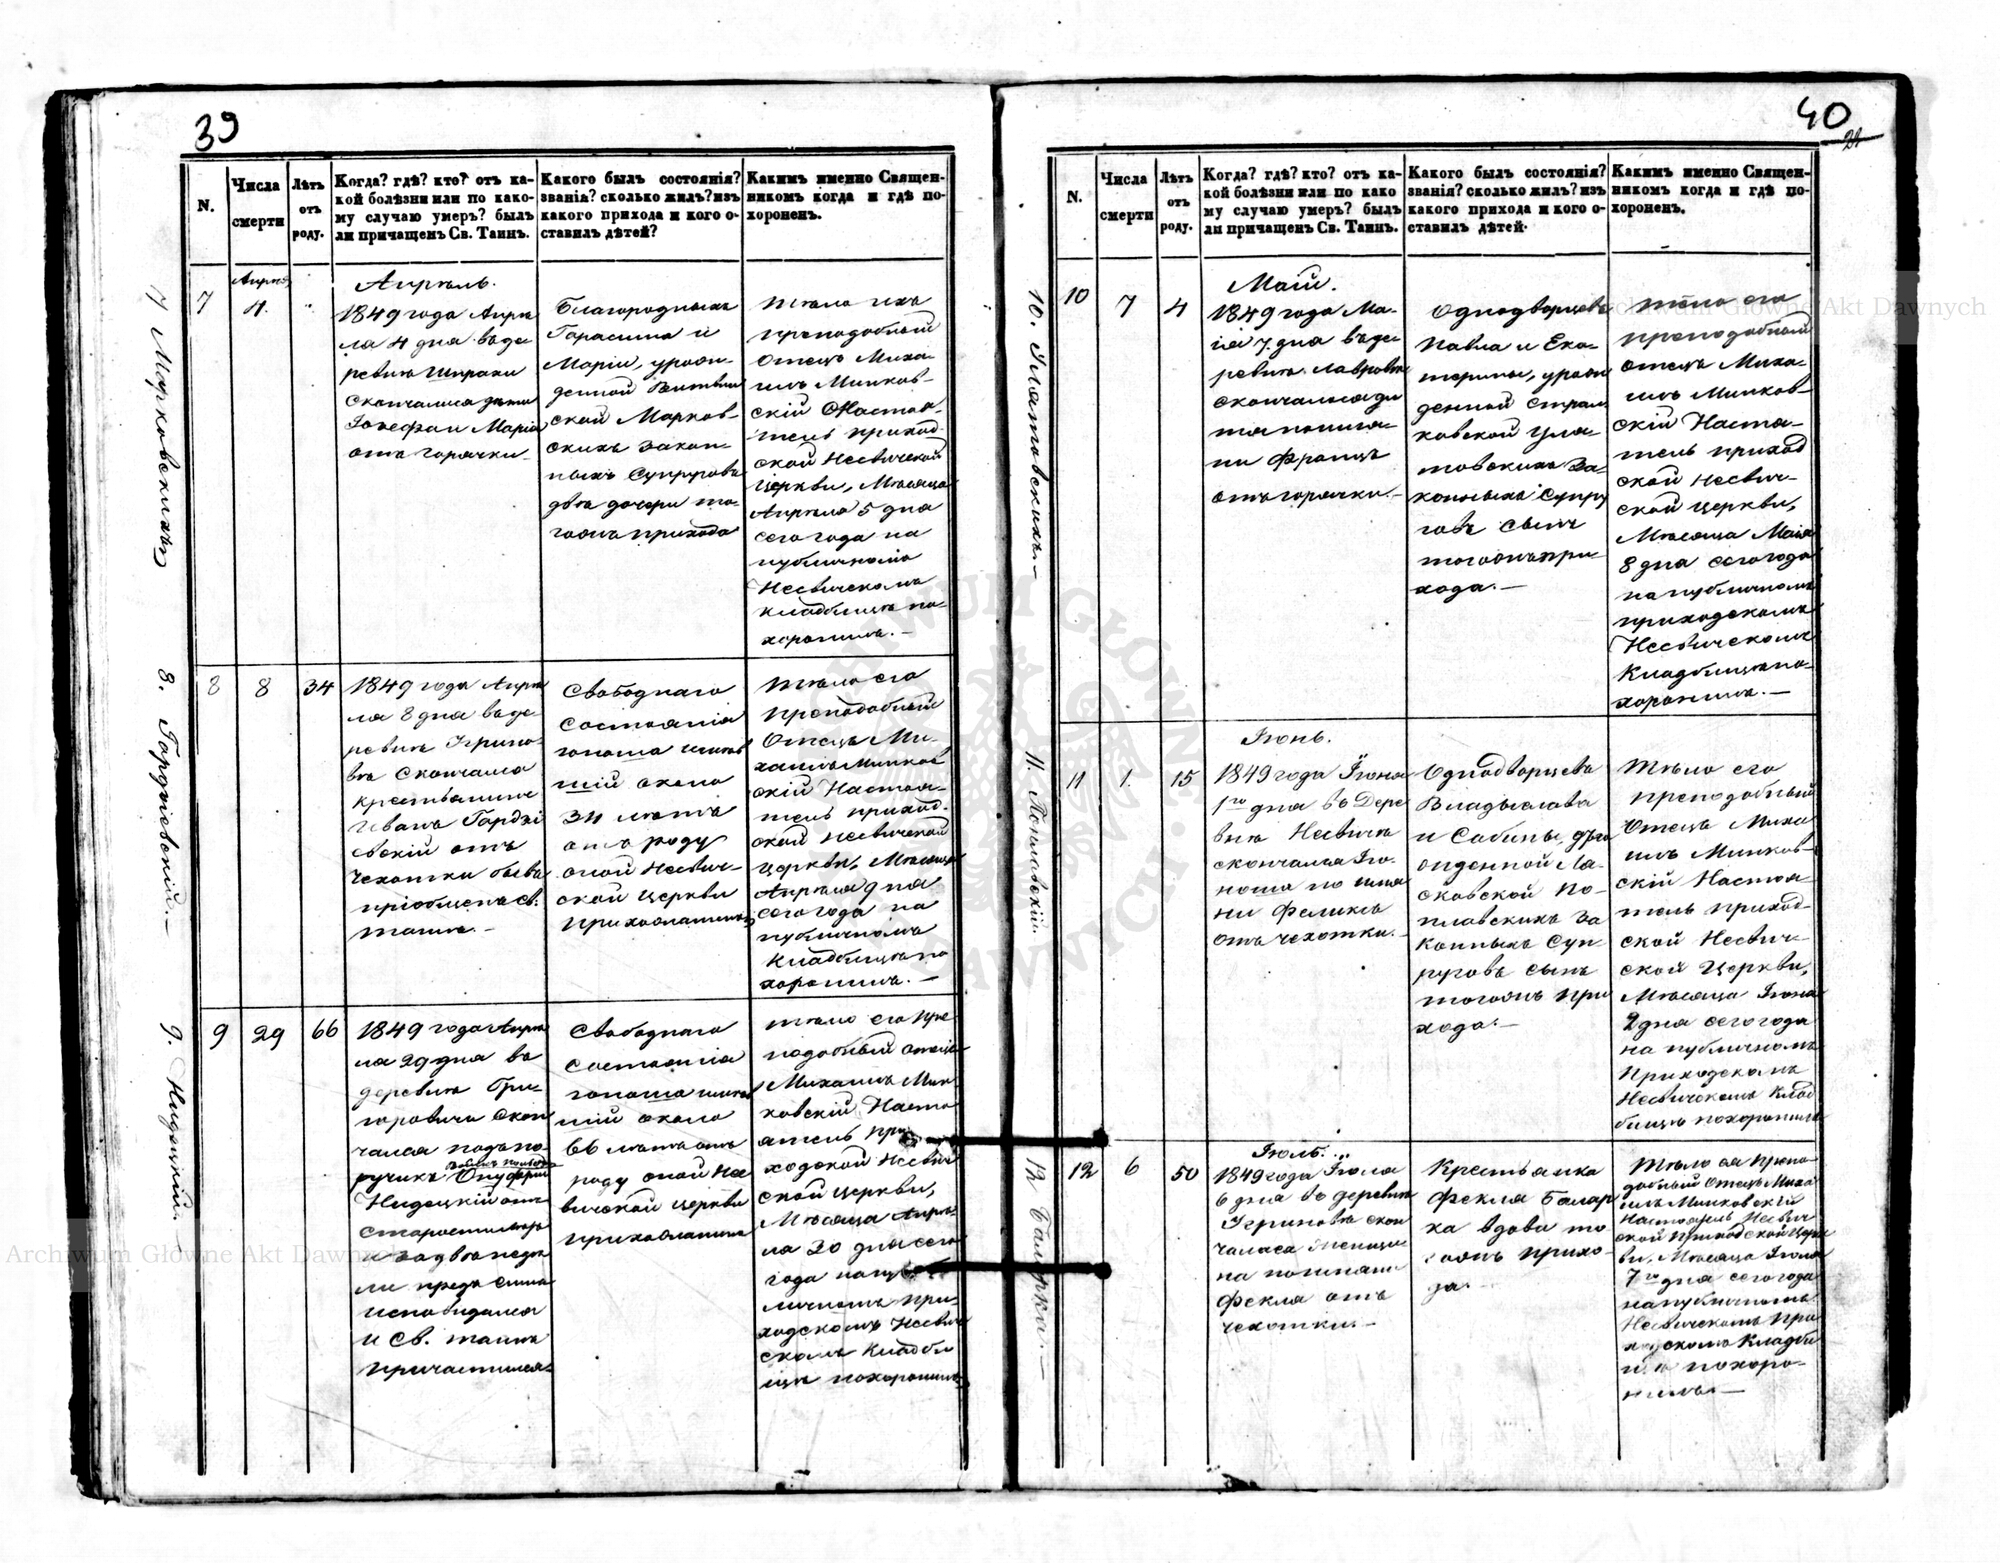 39
N.
Числа
смерти
Лѣтъ
отъ
роду.
Когда? гдѣ? кто? отъ ка-
кой болѣзни или по како-
му случаю умеръ? былъ
ли причащенъ Св. Таинъ.
Какого былъ состоянія?
званія? сколько жилъ? изъ
какого прихода и кого о-
ставилъ дѣтей?
Какимъ именно Священ-
никомъ когда и гдѣ по-
хороненъ.
7 Марковскихъ
7
4.
Апрѣль.
1849 года Апрѣ
ля 4 дня въ де
ревнѣ
скончались дѣти
Іозефа и Марія
отъ горячки
Благородныхъ
Гарасима и
Маріи, урож-
денной
ской Марков-
скихъ закон-
ныхъ Супруговъ
двѣ дочери то-
гожъ прихода
тѣло ихъ
преподобный
отецъ Миха-
илъ Минков-
скій Настоя-
тель приход-
ской Несвичской
Церкви, Мѣсяца
Апрѣля 5 дня
сего года на
публичномъ
Несвичскомъ
кладбищѣ по-
хоронилъ. —
8. Гордзіевскій. —
8
8
34
1849 года Апрѣ
ля 8 дня въ де-
ревнѣ Игрино-
вѣ скончался
крестьянинъ
Иванъ Гордзі
евскій отъ
чехотки бывъ
пріобщенъ св.
таинъ. —
Свободнаго
состоянія
юноша имѣв
шій около
34 лѣтъ
отъ роду
оной Несвич-
ской церкви
прихожанинъ
тѣло его
преподобный
Отецъ Ми-
хаилъ Минков
скій Настоя-
тель приход-
ской Несвичской
церкви, Мѣсяца
Апрѣля 9 дня
сего года на
публичномъ
кладбищѣ по
хоронилъ. —
9. Нидецкій —
9
29
66
1849 года Апрѣ
ля 29 дня въ
деревнѣ Гри-
горовичи скон
чался подъпо-
ручикъ Онуфрій
Нидецкій отъ
старости
и за двѣ недѣ
ли предъ симъ
исповѣдался
и св. таинъ
причастился
Свободнаго
состоянія
юноша имѣв
шій около
66 лѣтъ отъ
роду оной Не
свичской церкви
прихожанинъ
тѣло его пре
подобный отецъ
Михаилъ Мин-
ковскій Насто
ятель при
ходской Несвич
ской церкви,
Мѣсяца Апрѣ-
ля 30 дня сего
года на пуб
личномъ при-
ходскомъ Несвич
скомъ кладби
щѣ похоронилъ
40
N.
Числа
смерти
Лѣтъ
отъ
роду.
Когда? гдѣ? кто? отъ ка-
кой болѣзни или по како
му случаю умеръ? былъ
ли причащенъ Св. Таинъ.
Какого былъ состоянія?
званія? сколько жилъ? изъ
какого прихода и кого о-
ставилъ дѣтей.
Какимъ именно Священ-
никомъ когда и гдѣ по-
хороненъ.
10. Улятовскихъ. —
10
7
4
Май.
1849 года Ма-
ія 7 дня въ де
ревнѣ Лавровѣ
скончался ди
тя по име-
ни Францъ
отъ горячки. —
Однодворцевъ
Павла и Ека-
терины, урож
денной
ковской Уля-
товскихъ за-
конныхъ Супру
говъ сынъ
тогожъ при-
хода. —
тѣло его
преподобный
отецъ Миха-
илъ Минков-
скій Настоя-
тель приход
ской Несвич-
ской церкви,
Мѣсяца Маія
8 дня сего года
на публичномъ
приходскомъ
Несвичскомъ
Кладбищѣ по-
хоронилъ. —
11. Поплавскій. —
11
1.
15
Іюнь.
1849 года Іюня
1го дня въ Дере
внѣ Несвичѣ
скончался Юно-
ноша по име
ни Феликсъ
отъ чехотки. —
Однодворцевъ
Владыслава
и Сабины, уро
жденной Ла-
сковской По-
плавскихъ за
конныхъ Суп-
руговъ сынъ
тогожъ при
хода. —
тѣло его
преподобный
Отецъ Миха
илъ Минков-
скій Настоя-
тель приход-
ской Несвич-
ской Церкви,
Мѣсяца Іюня
2 дня сего года
на публичномъ
Приходскомъ
Несвичскомъ Клад
бищѣ похоронилъ
12 Баларки. —
12
6
50
Іюль.
1849 года Іюля
6 дня въ деревнѣ
Игриновѣ скон
чалась женщи-
на по имени
Фекля отъ
чехотки. —
Крестьянка
Фекля Балар
ка вдова то
гожъ прихо-
да. —
Тѣло ея Препо
добный Отецъ Миха
илъ Минковскій
Настоятель Несвич
ской Приходской Церк
ви, Мѣсяца Іюля
7го дня сего года
на публичномъ
Несвичскомъ При
ходскомъ Кладби
щѣ похоро-
нилъ. —
Archiwum Główne Akt Dawnych
Archiwum Główne Akt Dawnych